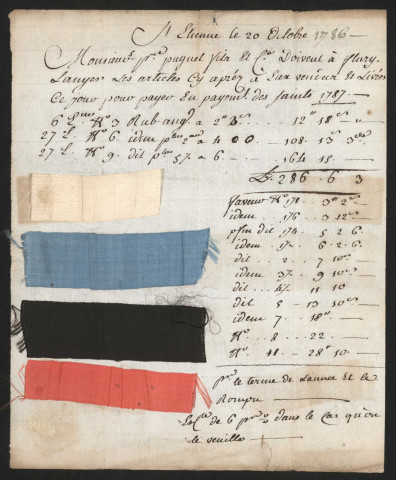 St Etienne le 20 Octobre 1786
Monsieur pre paquet fils et Ce Doivent à fleury
Lanyer Les articles Cy après à Eux vendus et Livrés
Ce jour pour payer En payement des saints 1787
6 No 3 Rub ang. a 2 3 12 18
27 L. No 6. idem 4 00 108. 13 3
27 L. No 9. dit 57 a 6 164 15
L. 286. 6 3
faveur No 170. 3 2
idem 176 3 12
dit 174. 5 2 6
idem 1/. 6. 2. 6
dit 2 7 10
idem 3/. 9 10
dit 4/. 11 10
dit 5 13 10
idem 7 18
No 8 22
No 11 28 10
le terme de Lannée et le
Rompu
Le de 6 dans le Cas qu'on
le veuille